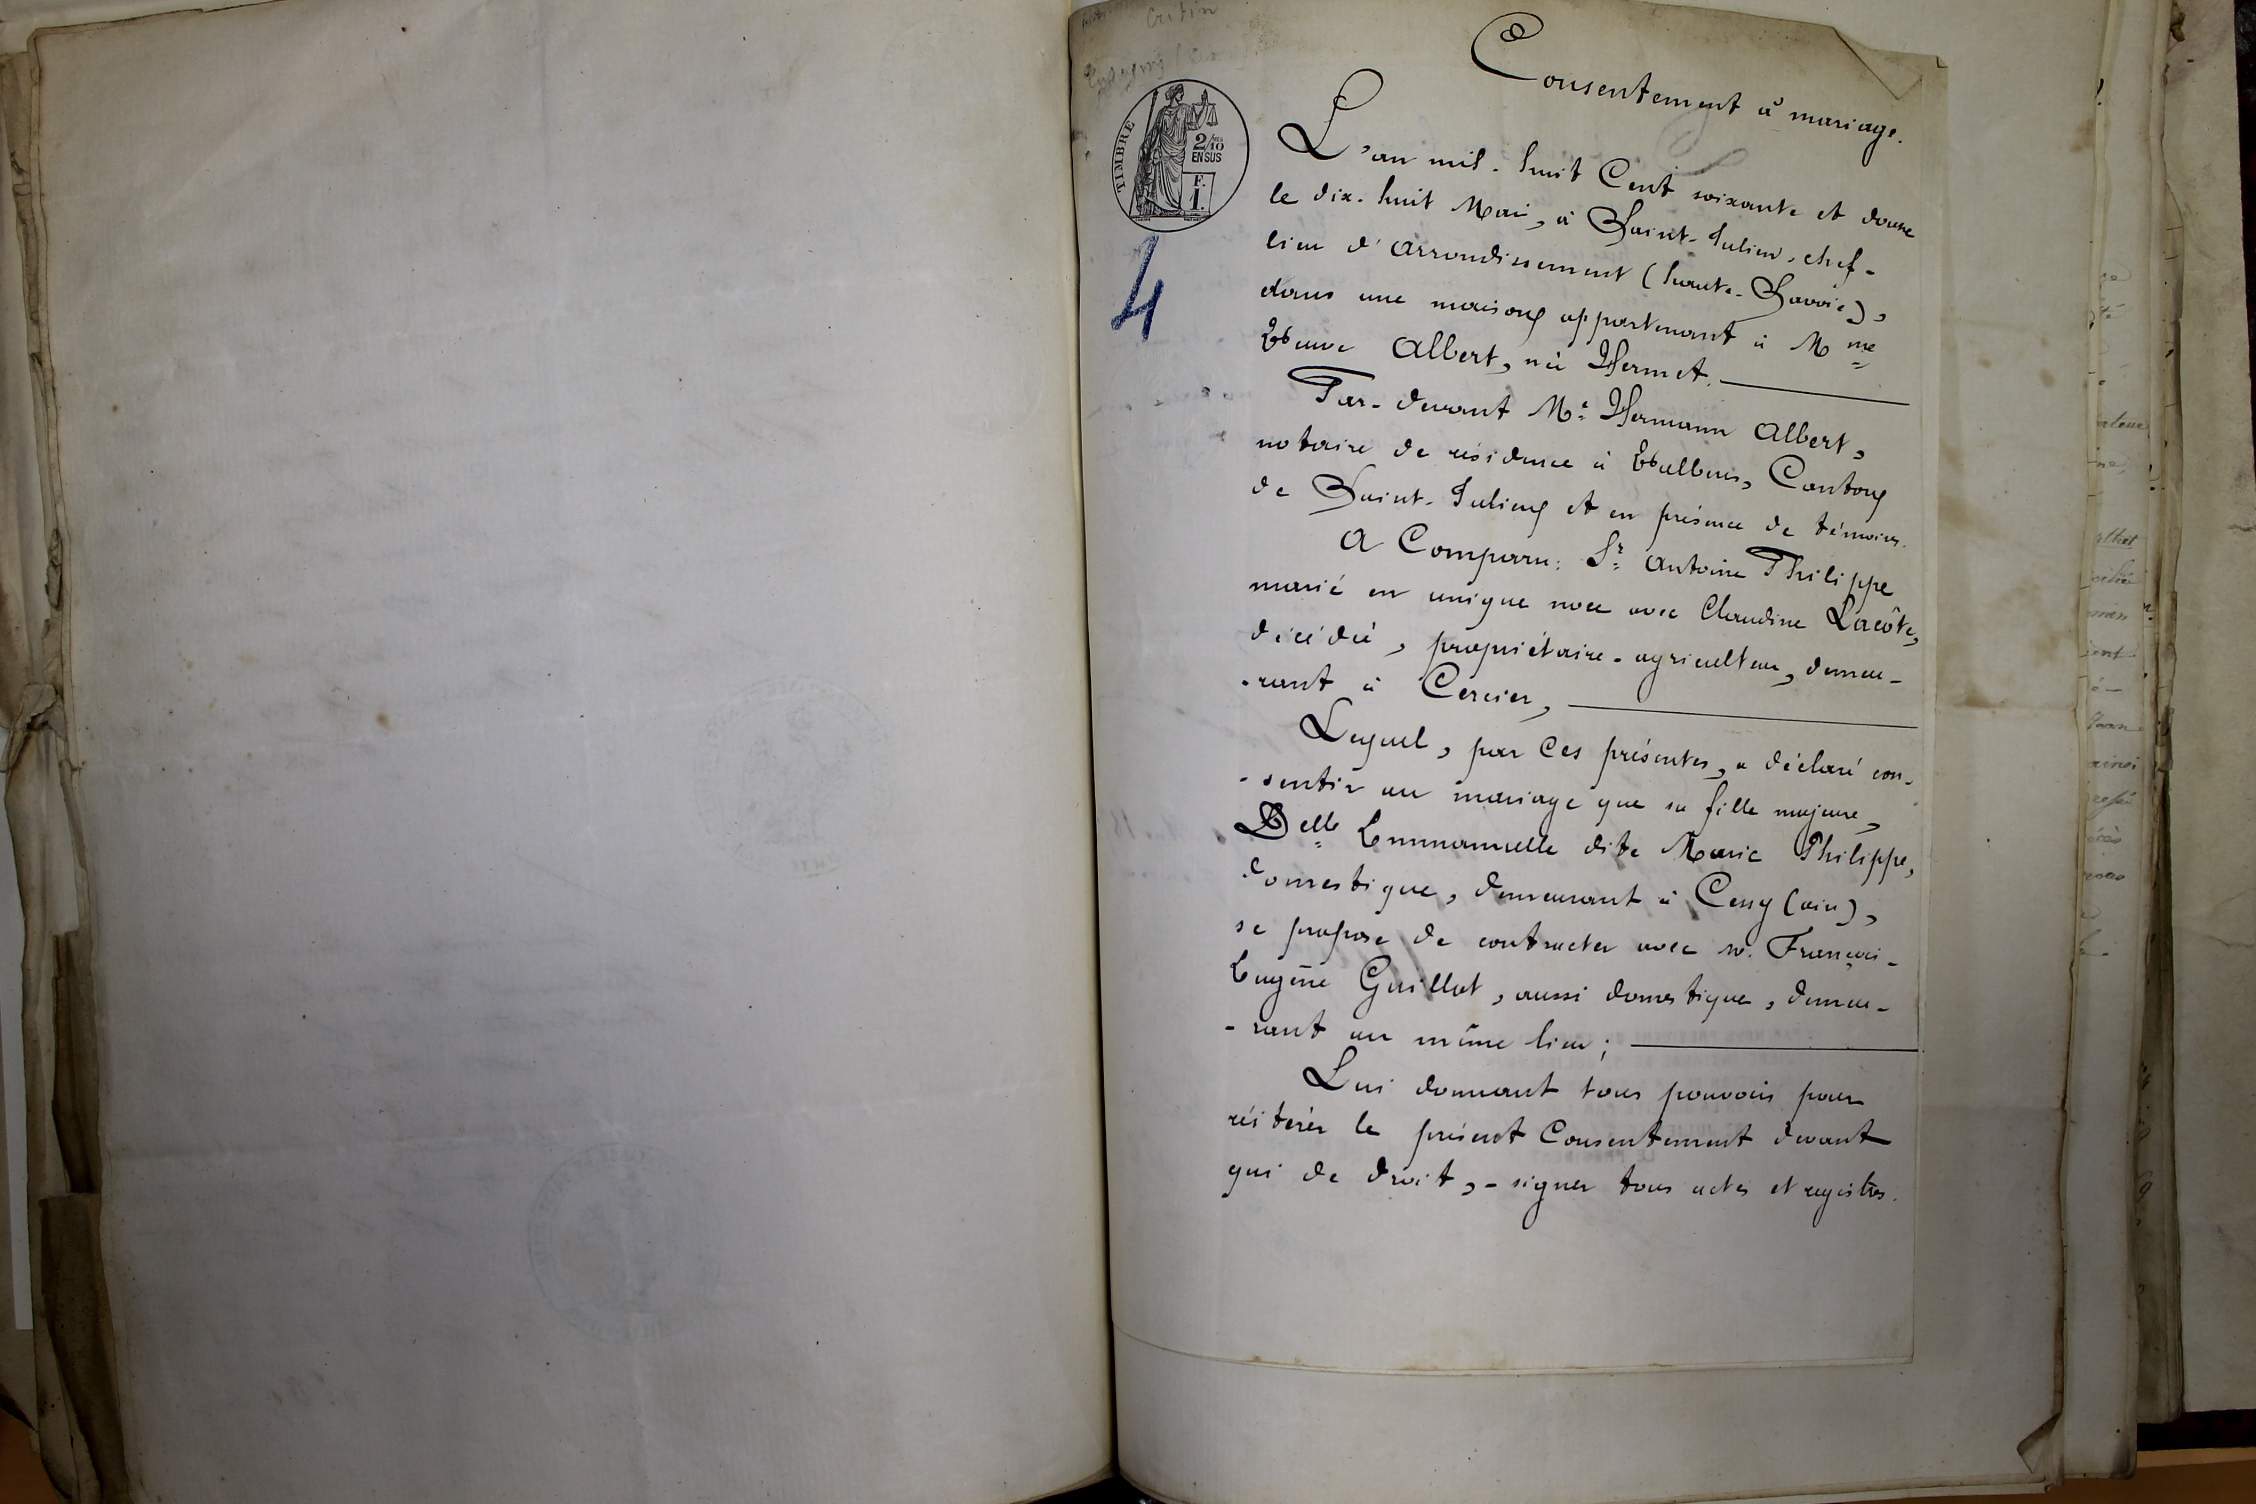 Consentement à mariage.
TIMBRE
2/10
EN SUS
F.
1.
4
L'an mil-huit Cent soixante et douze
le dix-huit Mai, à Saint-Julien, chef-
lieu d'Arrondissement (haute-Savoie),
dans une maison appartenant à Mme
Veuve Albert, née Hermet.
Par-devant Me Hermann Albert,
notaire de résidence à Valleiry, Canton
de Saint-Julien et en présence de témoins.
A Comparu: Sr Antoine Philippe
marié en unique noce avec Claudine Lacôte,
décédée, propriétaire-agriculteur, demeu-
-rant à Cercier,
Lequel, par Ces présentes, a déclaré con-
-sentir au mariage que sa fille majeure,
Delle Emmanuelle dite Marie Philippe,
domestique, demeurant à Cessy (ain),
se propose de contracter avec sr. François-
Eugène Guillot, aussi domestique, demeu-
-rant au même lieu;
Lui donnant tous pouvoirs pour
réitérer le présent Consentement devant
qui de droit, - signer tous actes et registres.